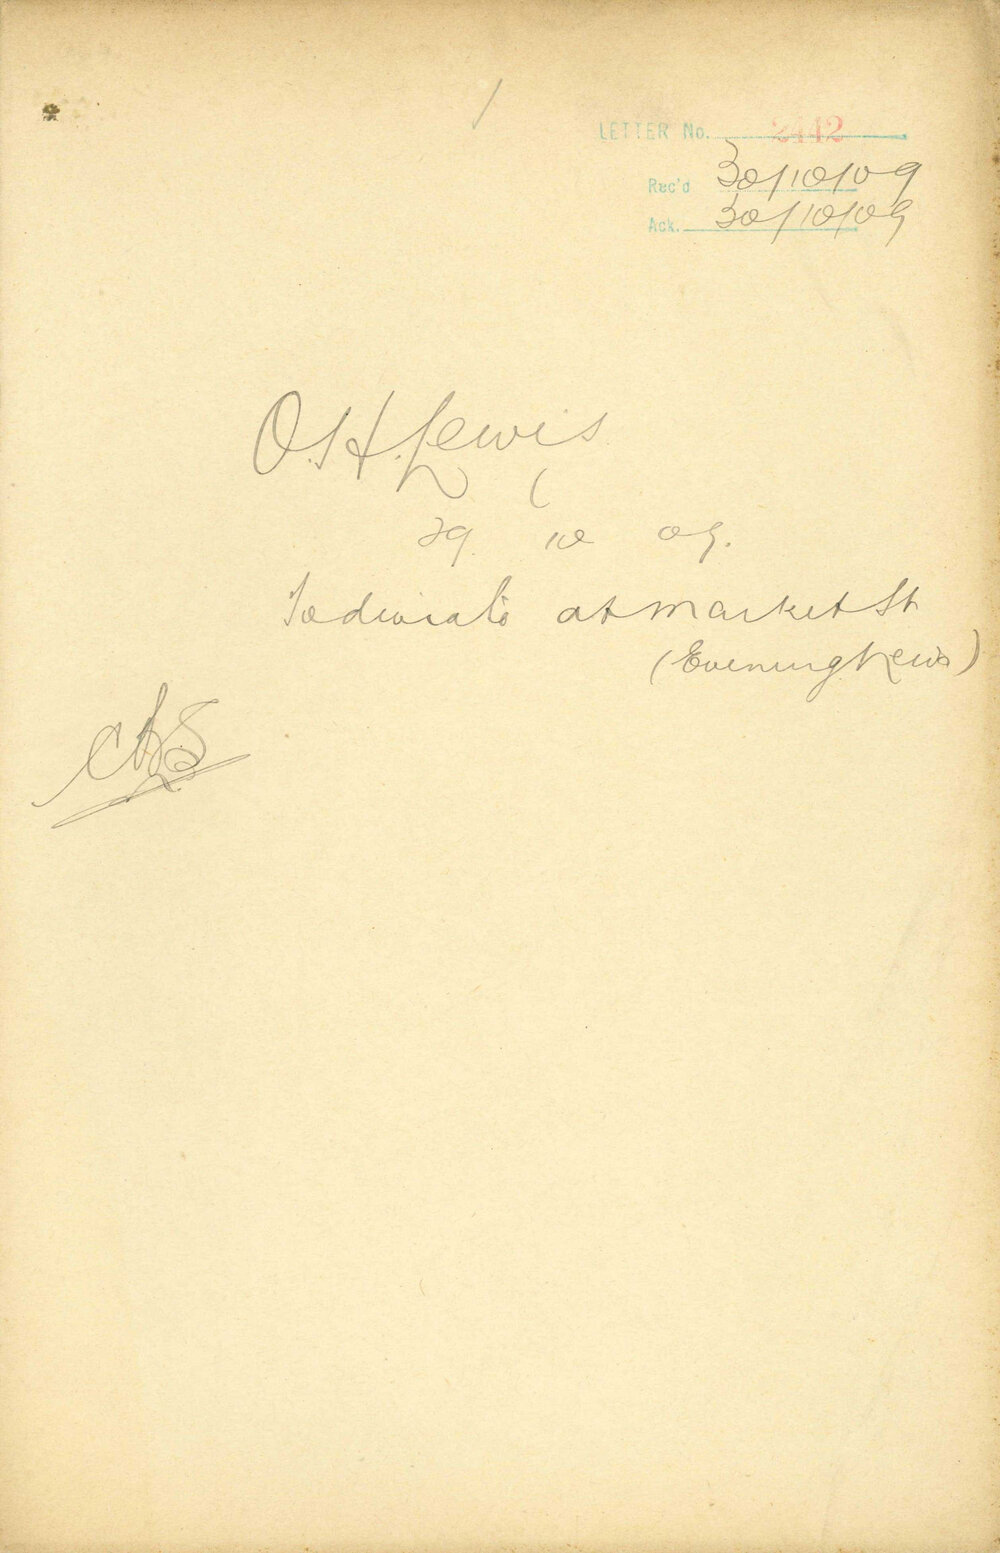 LETTER No. 2442
Rec'd 30/10/09
Ack. 30/10/09
O.H. Lewis
29 10 09.
at Market St
(Evening News)